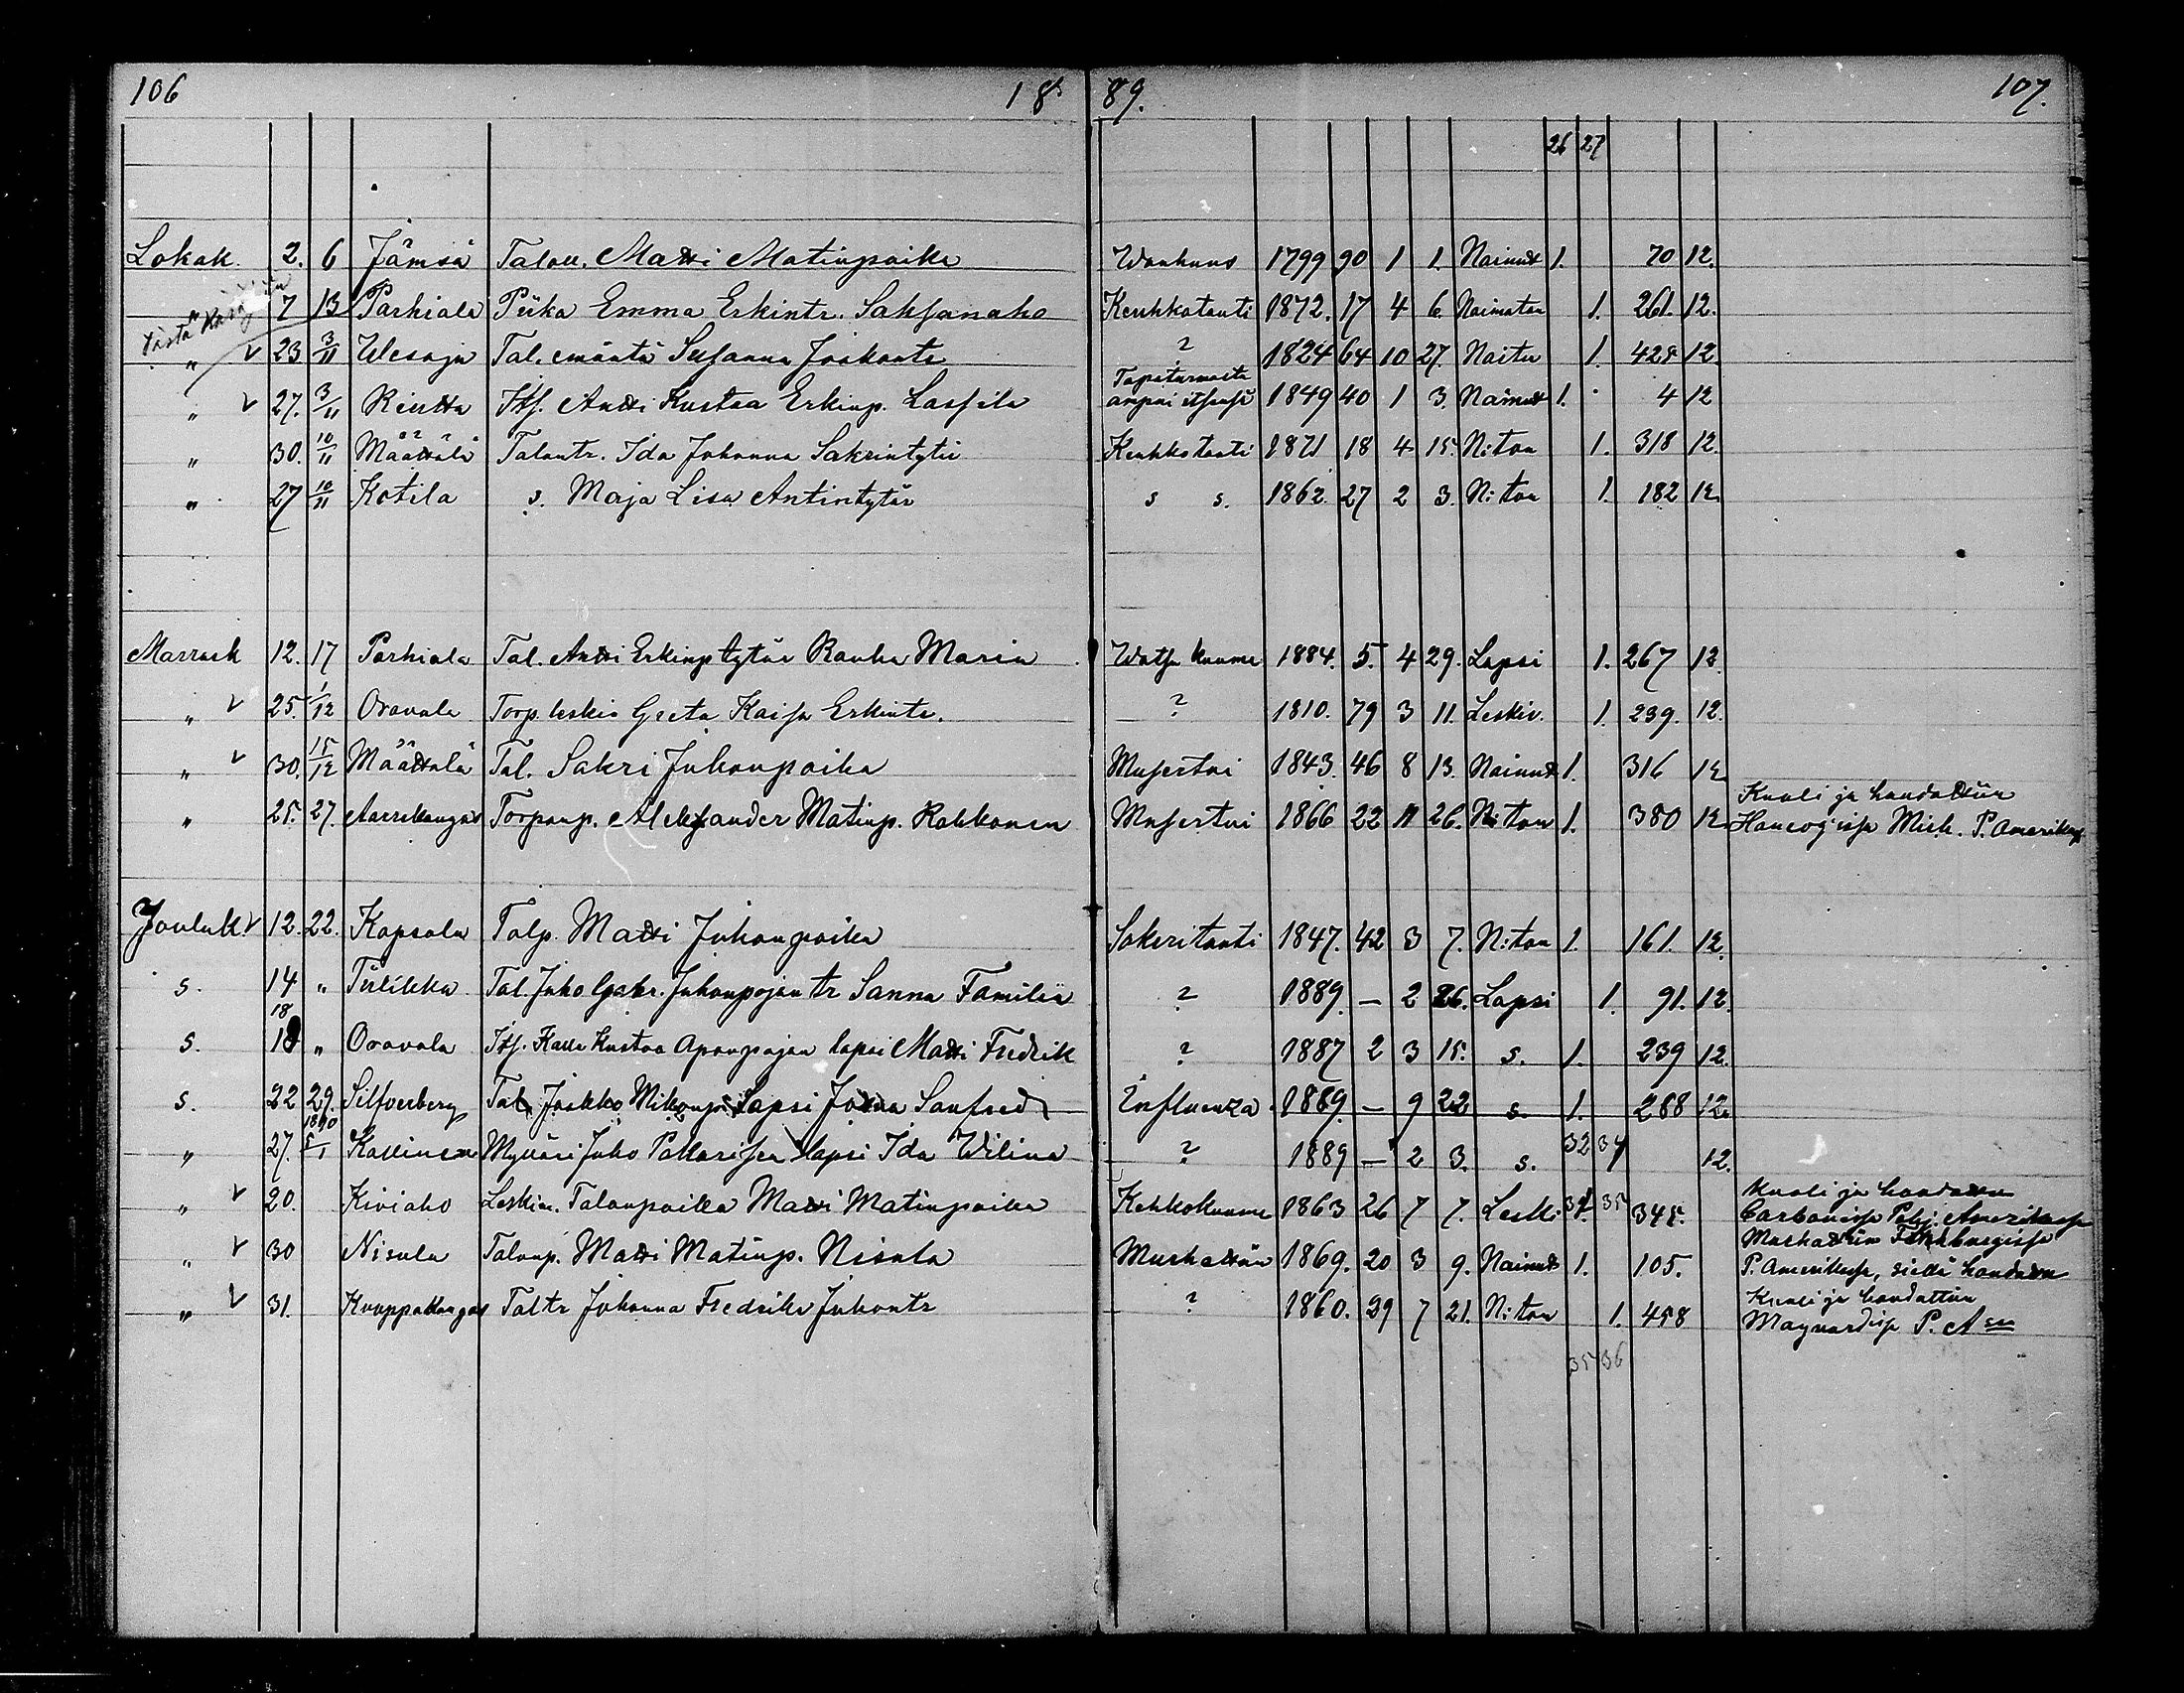 106 18 89. 107.
26 27
Lokak. 2. 6 Jämsä Talon. Matti Matinpoika Wanhuus 1799 90 1 1. Nainut 1. 70 12.
" 7 13 Parhiala Piika Emma Erkintr. Saksanaho Keuhkotauti 1872. 17 4 6. Naimaton 1. 261. 12.
Tästä
" v 23 3/11 Ulesoja Tal. emäntä Susanna Jaakontr. ? 1824 64 10 27. Naitu 1. 425 12.
Tapaturmasta
" v 27. 3/11 Rintta Itsl. Antti Kustaa Erkinp. Lassila ampui itsensä 1849 40 1 3. Nainut 1. 4 12
" 30. 10/11 Määttälä Talontr. Ida Johanna Sakrintytär Keuhkotauti 1871 18 4 15. N:ton 1. 318 12.
" 27 10/11 Kotila s. Maja Lisa Antintytär s s. 1862. 27 2 3. N:ton 1. 182 12.
Marrask 12. 17 Parhiala Tal. Antti Erkinp tytär Rauha Maria Watsa kuume 1884. 5. 4 29. Lapsi 1. 267 12.
" v 25. 1/12 Oravala Torp. leskiv Greta Kaisa Erkintr. ? 1810. 79 3 11. Leskiv. 1. 239. 12.
" v 30. 15/12 Määttälä Tal. Sakri Juhonpoika Musertui 1843. 46 8 13. Nainut 1. 316 12.
Kuoli ja haudattiin
" 25. 27. Aarrekangas Torpanp. Aleksander Matinp. Rahkonen Musertui 1866 22 11 26. N:ton 1. 380 12. Hancog'issa Mich. P. Amerikas.
Jouluk. v 12. 22. Kapsala Talp. Matti Juhonpoika Sokeritauti 1847. 42 3 7. N:ton 1. 161. 12.
s. 14 " Tiilikka Tal. Juho Gabr. Juhonpojan tr Sanna Familia ? 1889. — 2 26. Lapsi 1. 91. 12.
18
s. 18 " Oravala Itsl. Kalle Kustaa Aponpojan lapsi Matti Fredrik ? 1887 2 3 15. s. 1. 239 12.
s. 22 29. Silfverberg Tal. Jaakko Mikonp. Lapsi Sanfred Influenza 1889. — 9 22 s. 1. 288 12.
1890
" 27. 5/1 Kallinen Mylläri Juho Pakarisen lapsi Ida Wilina ? 1889 — 2 3. s. 32 34 12.
Kuoli ja haudattu
" v 20. Kiviaho Leskim. Talonpoika Matti Matinpoika Kehkokuume 1863 26 7 7. Leski 34. 35 345. Carbonissa Amerikassa
Murhattiin
" v 30 Nisula Talonp. Matti Matinp. Nisula Murhattiin 1869. 20 3 9. Nainut 1. 105. P. Amerikassa, siellä haudattu
Kuoli ja haudattiin
" v 31. Kauppakangas Taltr Johanna Fredrika Juhontr ? 1860. 29 7 21. N:ton 1. 458 Maynardissa P. A
35 36